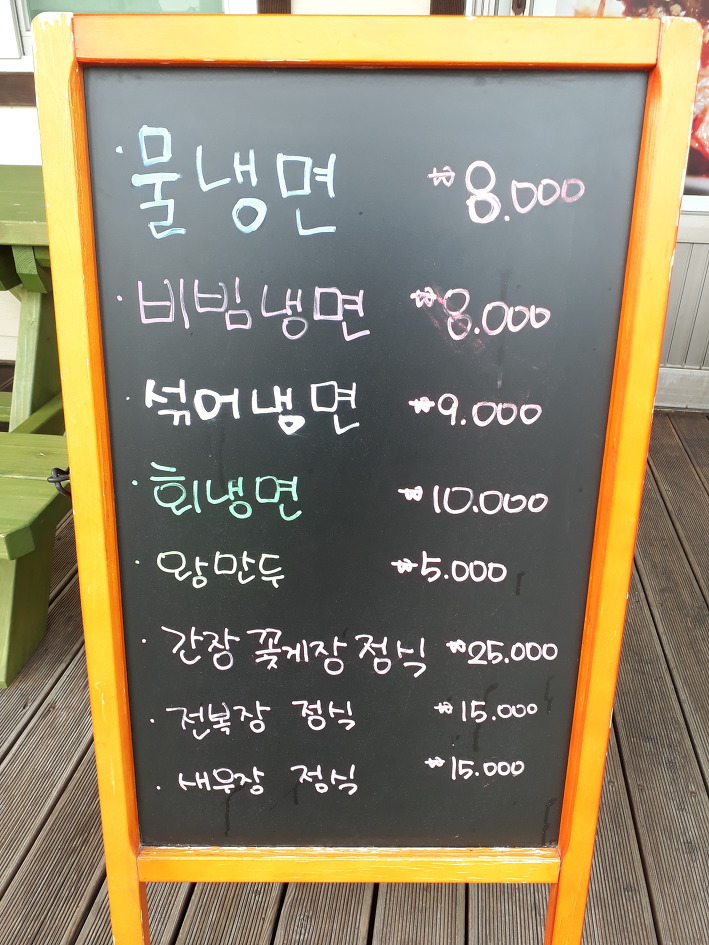 · 물냉면 ₩8.000
· 비빔냉면 ₩8.000
· 섞어냄면 ₩9.000
· 회냉면 ₩10.000
· 왕만두 ₩5.000
· 간장꽃게장정식 ₩25.000
· 전복장 정식 ₩15.000
· 새우장 정식 ₩15.000